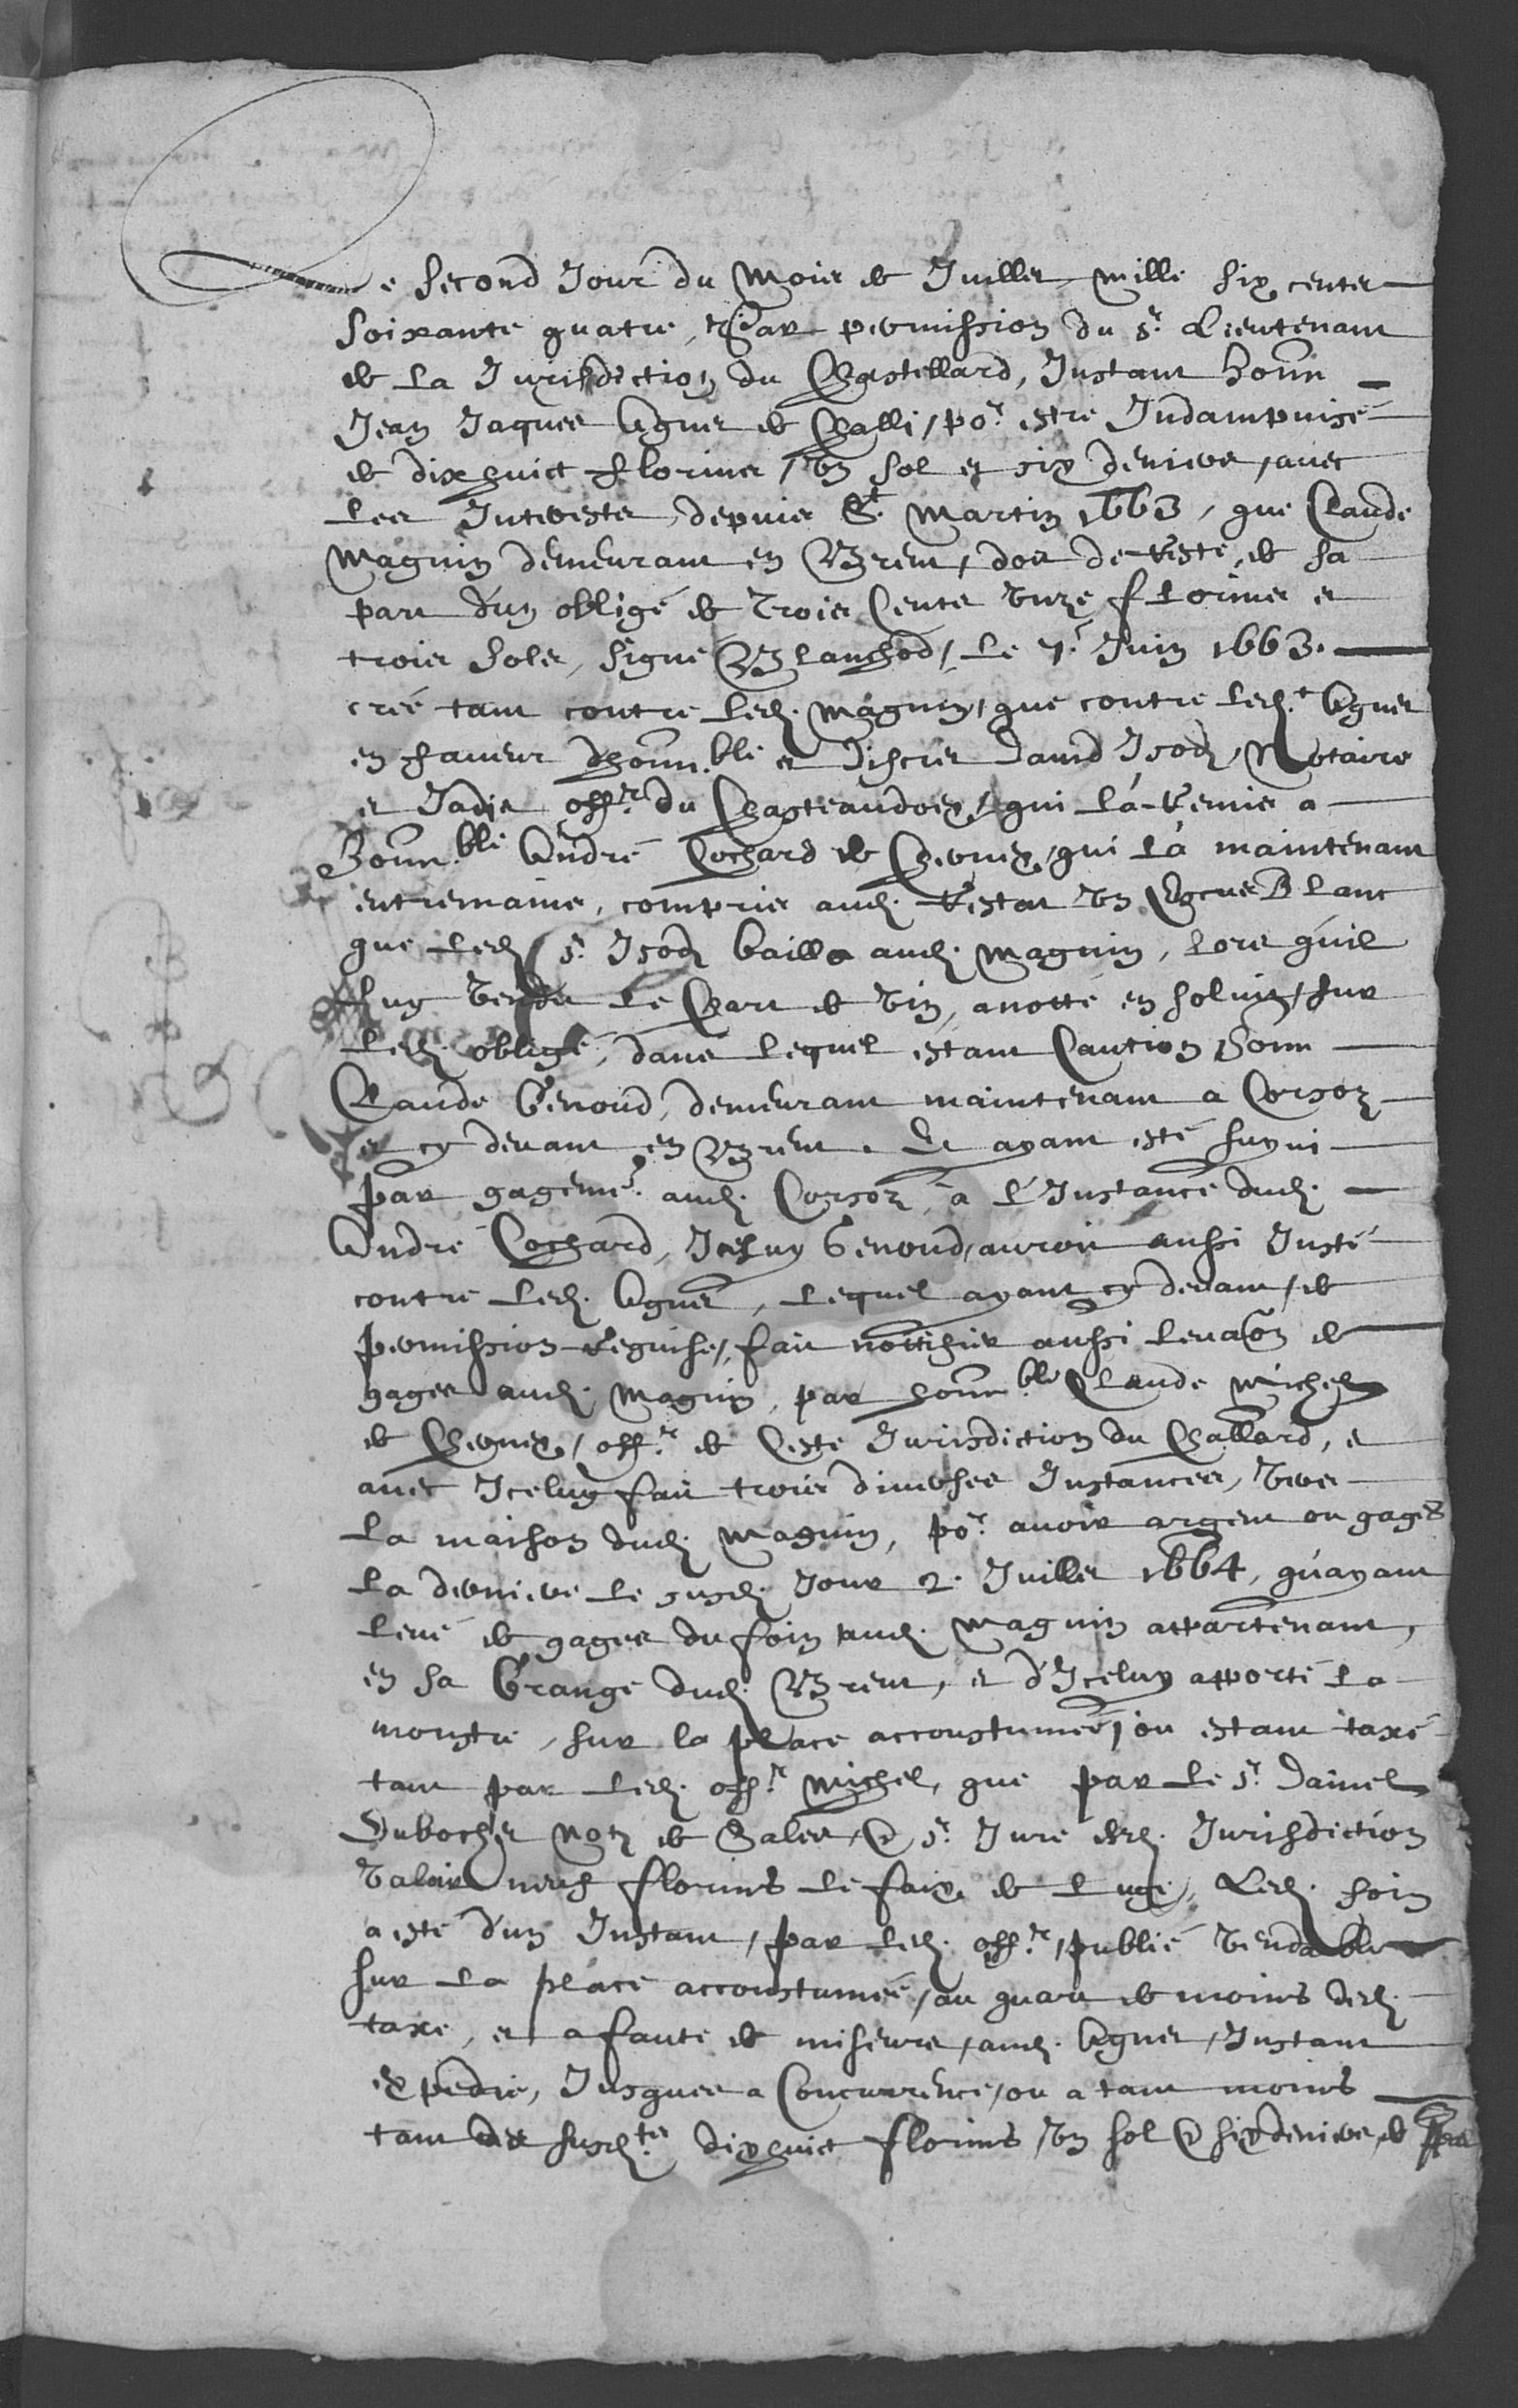 Le Second Jour du Mois de Juillet mille six centes
Soixante quatre, Par permission du Sr. Lieutenant
de la Jurisdiction du Chastellard, Instant honn
Jean Jaques Aguet de Challi, por. estre Indampnisé
de dixhuict florins, Un sol et six deniers, avec
Les Interestz, depuis St. Martin 1663, que Claude
Maguin demeurant en Brent, doit de reste, de sa
part d'un obligé de Trois Cents Unze florins et
trois sols, signé Blanchod, Le 7e. Juin 1663.
créé tant contre led. Maguin, que contre led.t Aguet
en faveur d'honn.ble et discret David Isoz, Notaire
et Jadis offr. du Chasteaudoex, qui l'a remis a
Honn.ble André Cochard de Chernex, qui l'a maintenant
entremains, compris aud. restat Un Escus Blanc
que led. Sr. Isoz bailla aud. Maguin, lors qu'il
luy vendit le Chart de Vin, anotté en solvit, sur
led. obligé, dans lequel estant Caution Honn
Claude Genoud, demeurant maintenant a Corsoz
et cy devant en Brent. Et ayant esté suyvi
par gageme.t aud. Corsoz, a l'Instance dud.
André Cochard, Iceluy Genoud, auroit aussi Insté
contre led. Aguet, Lequel ayant cy devant, de
permission requise, fait nottifier aussi levaon de
gages aud. Maguin, par honn.ble Claude Michel
de Chernex, offr. de Ceste Jurisdiction du Chastellard, et
avec Iceluy fait trois diverses Instances, Vers
la maison dud. Maguin, por. avoir argent ou gages
la derniere le susd. Jour 2. Juillet 1664, qu'ayant
levé de gages du foin aud. Maguin appartenant,
en sa Grange dud. Brent, et d'Iceluy apporté la
monstre, sur la place accoustumée, ou estant taxé
tant par led. offr. Michel, que par le Sr. Daniel
Dubochet Not. de Sales, & Sr. Juré ded. Jurisdiction
Valoir neuf florins le faix de luge, Led. foin
a esté d'un Instant, par led. offr., publié Vendable
sur la place accoustumée, au quart de moins ded.
taxe, et a faute de miseurs, aud. Aguet, Instant
expedié, Jusques a Concurrence, ou a tant moins
tant des susd.tes dixhuict florins, Un sol & six deniers, de